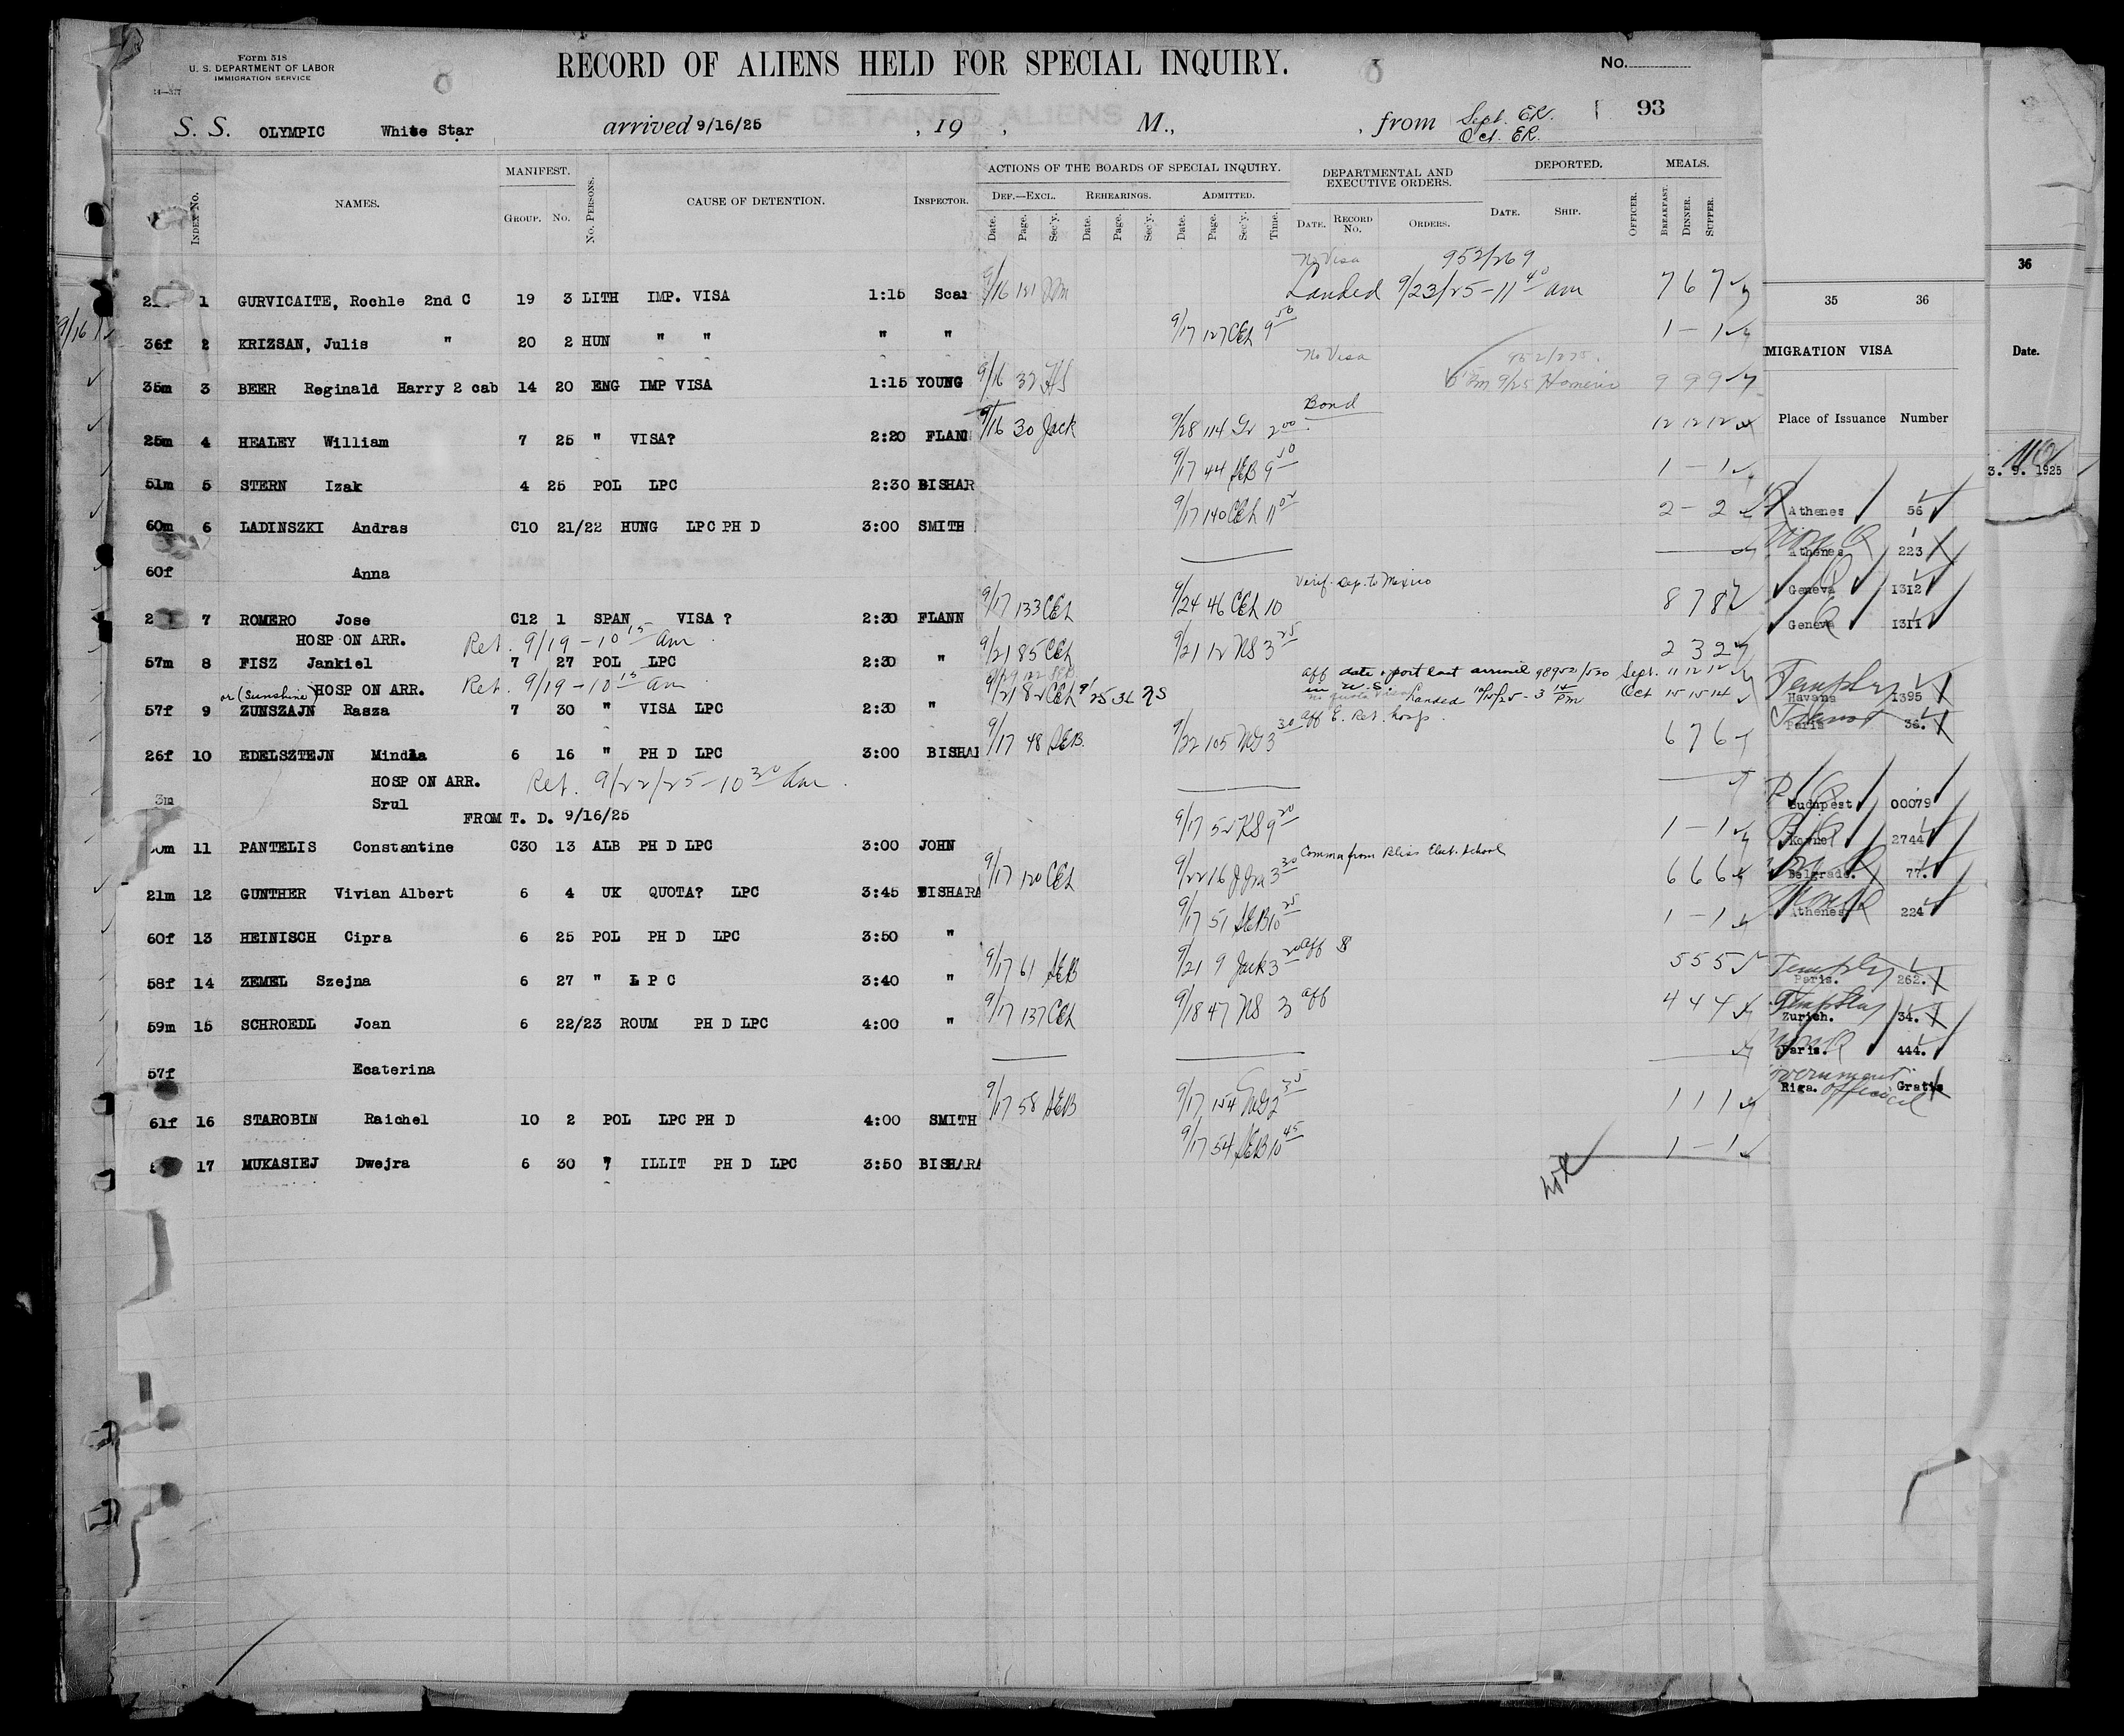 Form 518
U. S. DEPARTMENT OF LABOR
IMMIGRATION SERVICE
14—377
RECORD OF ALIENS HELD FOR SPECIAL INQUIRY.
No.
93
S. S. OLYMPIC White Star arrived 9/16/25 , 19 , M., , from Sept. ER.
Oct. ER.
INDEX NO. NAMES. MANIFEST. GROUP. NO. NO. PERSONS. CAUSE OF DETENTION. INSPECTOR.
ACTIONS OF THE BOARDS OF SPECIAL INQUIRY. DEF.—EXCL. REHEARINGS. ADMITTED.
Date. Page. Sec'y. Date. Page. Sec'y. Date. Page. Sec'y. Time.
DEPARTMENTAL AND EXECUTIVE ORDERS. DATE. RECORD NO. ORDERS.
DEPORTED. DATE. SHIP. OFFICER. MEALS. BREAKFAST. DINNER. SUPPER.
No Visa 952/269
1 GURVICAITE, Rochle 2nd C 19 3 LITH IMP. VISA 1:15 9/16 121 Landed 9/23/25 – 11 40 am 7 6 7
36f 2 KRIZSAN, Julis " 20 2 HUN " " " " 9/17 127 CEL 9 50 1 – 1
No Visa 952/275.
35m 3 BEER Reginald Harry 2 cab 14 20 ENG IMP VISA 1:15 YOUNG 9/16 32 9/25 Homeric 9 9 9
Bond
25m 4 HEALEY William 7 25 " VISA? 2:20 FLANN 9/16 30 Jack 9/28 114 2 00 12 12 12
51m 5 STERN Izak 4 25 POL LPC 2:30 BISHAR 9/17 44 SEB 9 50 1 – 1
60m 6 LADINSZKI Andras C10 21/22 HUNG LPC PH D 3:00 SMITH 9/17 140 CEL 11 02 2 – 2
60f Anna
Verif. dep. to Mexico
7 ROMERO Jose C12 1 SPAN VISA ? 2:30 FLANN 9/17 133 CEL 9/24 46 CEL 10 8 7 8
HOSP ON ARR. Ret. 9/19 – 10 15 am.
57m 8 FISZ Jankiel 7 27 POL LPC 2:30 " 9/21 85 CEL 9/21 12 NS 3 25 2 3 2
or (Sunshine) HOSP ON ARR. Ret. 9/19 – 10 15 am.
aff date & port last arrival 98952/530 Sept. 11 12 12
in U.S. Landed 10/15/25 – 3 PM Oct 15 15 14
57f 9 ZUNSZAJN Rasza 7 30 " VISA LPC 2:30 " 9/21 82 CEL 9/25 36 NS
aff & Ret. hosp.
26f 10 EDELSZTEJN Mindla 6 16 " PH D LPC 3:00 BISHAR 9/17 48 SEB. 9/22 105 3 30 6 7 6
HOSP ON ARR. Ret. 9/22/25 – 10 30 am.
3m Srul
FROM T. D. 9/16/25
11 PANTELIS Constantine C30 13 ALB PH D LPC 3:00 JOHN 9/17 52 NS 9 20 1 – 1
Comm from Bliss Elect. School
21m 12 GUNTHER Vivian Albert 6 4 UK QUOTA? LPC 3:45 BISHARA 9/17 120 CEL 9/22 16 3 30 6 6 6
60f 13 HEINISCH Cipra 6 25 POL PH D LPC 3:50 " 9/17 51 SEB 10 25 1 – 1
58f 14 ZEMEL Szejna 6 27 " L P C 3:40 " 9/17 61 SEB 9/21 9 Jack 3 20 aff 5 5 5
59m 15 SCHROEDL Joan 6 22/23 ROUM PH D LPC 4:00 " 9/17 137 CEL 9/18 47 NS 3 aff 4 4 4
57f Ecaterina
61f 16 STAROBIN Raichel 10 2 POL LPC PH D 4:00 SMITH 9/17 58 SEB 9/17 154 2 35 1 1 1
17 MUKASIEJ Dwejra 6 30 " ILLIT PH D LPC 3:50 BISHARA 9/17 54 SEB 10 45 1 – 1
9/16
35 36
MIGRATION VISA
Place of Issuance Number
Athenes 56
Athenes 223
Geneva 1312
Geneva 1311
Havana 1395
Paris 36.
Budapest 00079
Kowno 2744
Belgrade. 77.
Athenes 224
Paris. 262.
Zurich. 34.
Paris. 444.
Riga. Gratis
official
36
Date.
3. 9. 1925